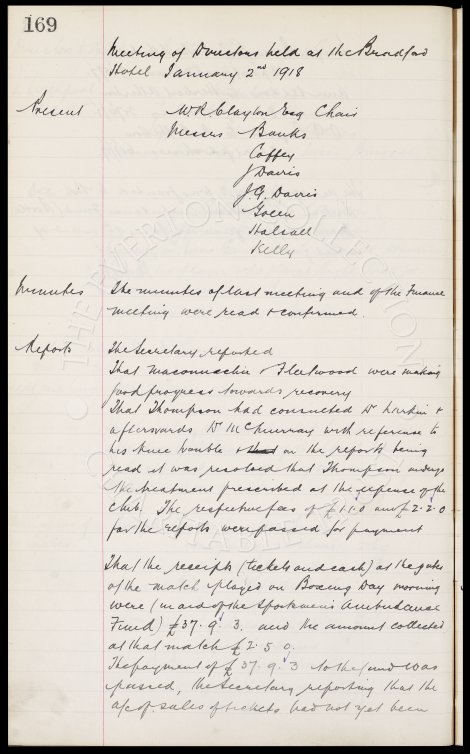 169
Meeting of Directors held at the Bradford
Hotel January 2nd 1918
Present W.R. Clayton Esq Chair
Messrs Banks
Coffey
J Davies
J.G. Davies
Green
Halsall
Kelly
Minutes The minutes of last meeting and of the Finance
meeting were read & confirmed.
Reports The Secretary reported
That Maconnachie & Fleetwood were making
good progress towards recovery
That Thompson had consulted Dr Larkin &
afterwards Dr McMurray with reference to
his knee trouble & on the reports being
read it was resolved that Thompson undergo
the treatment prescribed at the expense of the
club. The respective fees of £1.1.0 and £2.2.0
for the reports were passed for payment
That the receipts (tickets and cash) at the gates
of the match played on Boxing Day morning
were (in aid of the Sportsmen's Ambulance
Fund) £37.9.3. and the amount collected
at that match £2.5.0
The payment of £37.9.3 to the fund was
passed, the Secretary reporting that the
a/c of sales of tickets had not yet been
THE EVERTON COLLECTION